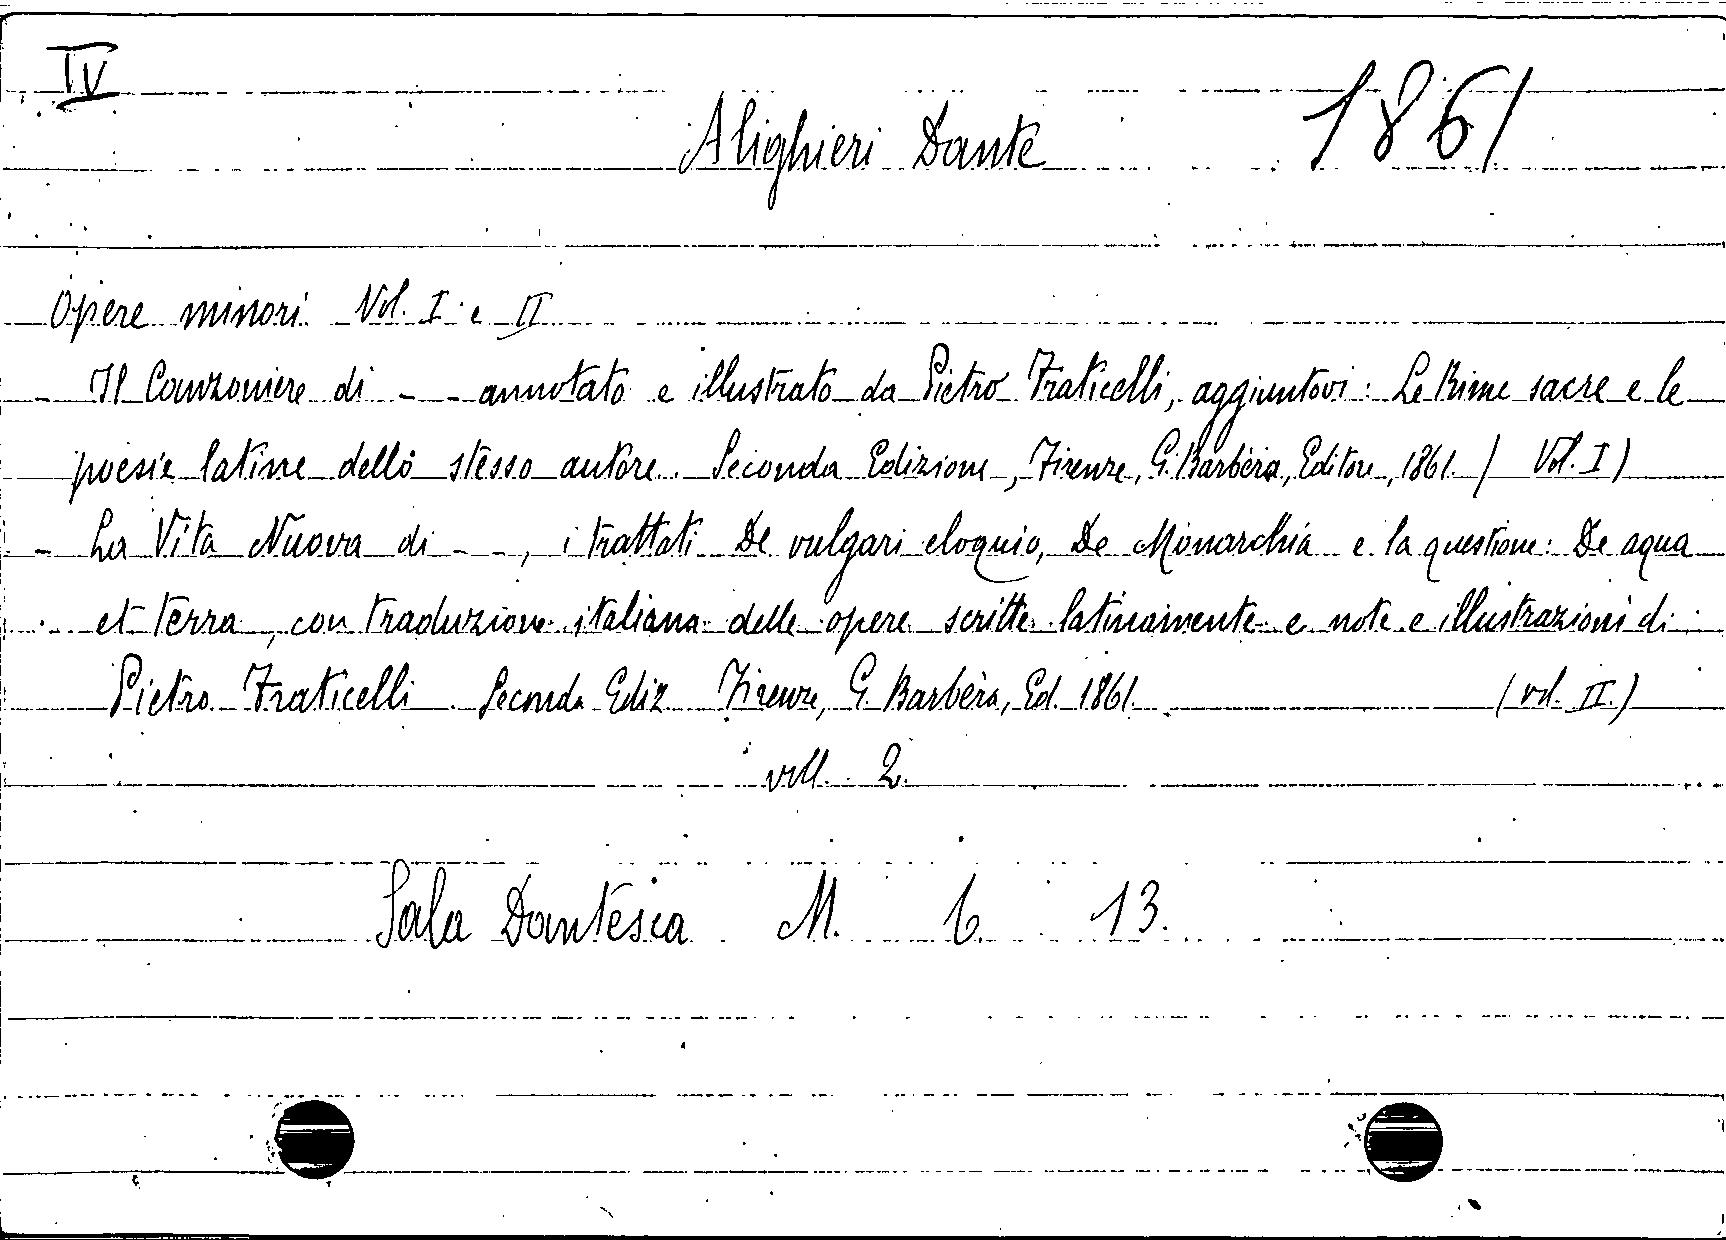 IV
1861
Alighieri Dante
Opere minori Vol. I e II
- Il Canzoniere di - - annotato e illustrato da Pietro Fraticelli, aggiuntovi: Le Rime sacre e le
poesie latine dello stesso autore. Seconda Edizione, Firenze, G. Barbèra, Editore, 1861. (Vol. I)
- La Vita Nuova di - -, i trattati De vulgari eloquio, De Monarchia e la questione: De aqua
et terra, con traduzione italiana delle opere scritte latinamente e note e illustrazioni di
Pietro Fraticelli Seconda Ediz Firenze, G. Barbèra, Ed. 1861. (vol. II.)
voll. 2.
Sala Dantesca M. 6. 13.